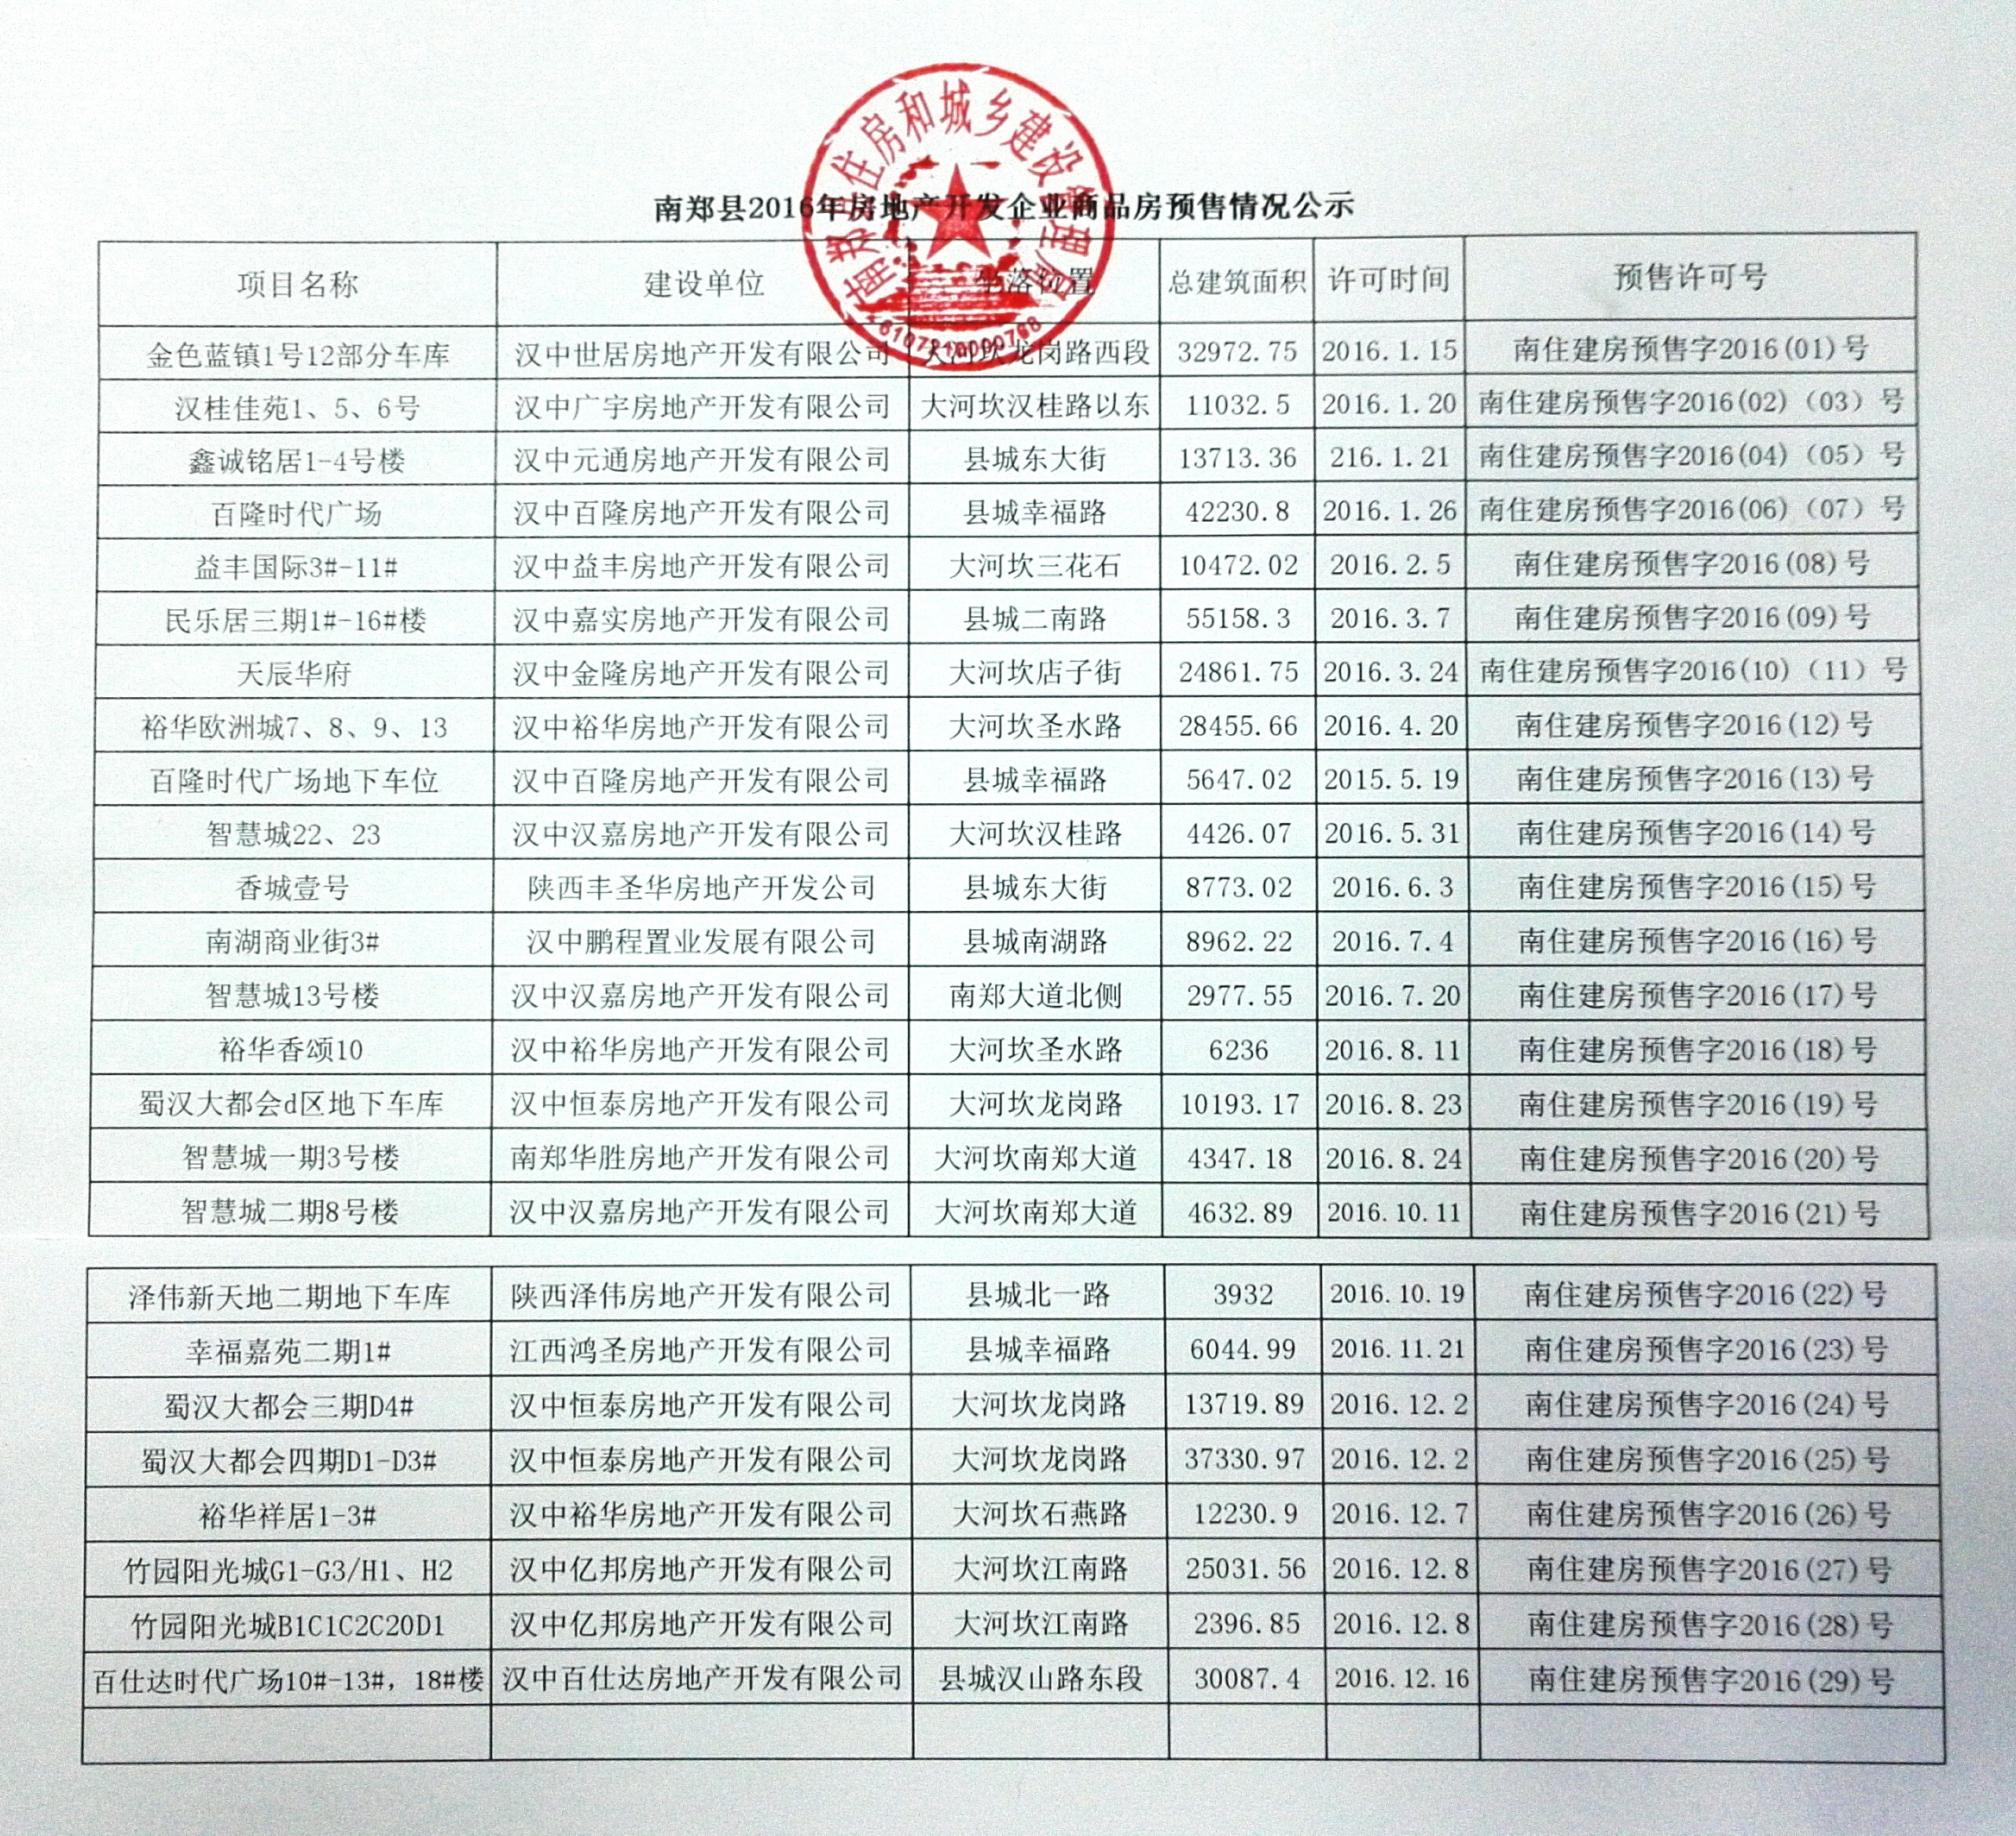 南郑县住房和城乡建设管理局
6107210000768
南郑县2016年房地产开发企业商品房预售情况公示
项目名称 建设单位 坐落位置 总建筑面积 许可时间 预售许可号
金色蓝镇1号12部分车库 汉中世居房地产开发有限公司 大河坎龙岗路西段 32972.75 2016.1.15 南住建房预售字2016(01)号
汉桂佳苑1、5、6号 汉中广宇房地产开发有限公司 大河坎汉桂路以东 11032.5 2016.1.20 南住建房预售字2016(02)（03）号
鑫诚铭居1-4号楼 汉中元通房地产开发有限公司 县城东大街 13713.36 216.1.21 南住建房预售字2016(04)（05）号
百隆时代广场 汉中百隆房地产开发有限公司 县城幸福路 42230.8 2016.1.26 南住建房预售字2016(06)（07）号
益丰国际3#-11# 汉中益丰房地产开发有限公司 大河坎三花石 10472.02 2016.2.5 南住建房预售字2016(08)号
民乐居三期1#-16#楼 汉中嘉实房地产开发有限公司 县城二南路 55158.3 2016.3.7 南住建房预售字2016(09)号
天辰华府 汉中金隆房地产开发有限公司 大河坎店子街 24861.75 2016.3.24 南住建房预售字2016(10)（11）号
裕华欧洲城7、8、9、13 汉中裕华房地产开发有限公司 大河坎圣水路 28455.66 2016.4.20 南住建房预售字2016(12)号
百隆时代广场地下车位 汉中百隆房地产开发有限公司 县城幸福路 5647.02 2015.5.19 南住建房预售字2016(13)号
智慧城22、23 汉中汉嘉房地产开发有限公司 大河坎汉桂路 4426.07 2016.5.31 南住建房预售字2016(14)号
香城壹号 陕西丰圣华房地产开发公司 县城东大街 8773.02 2016.6.3 南住建房预售字2016(15)号
南湖商业街3# 汉中鹏程置业发展有限公司 县城南湖路 8962.22 2016.7.4 南住建房预售字2016(16)号
智慧城13号楼 汉中汉嘉房地产开发有限公司 南郑大道北侧 2977.55 2016.7.20 南住建房预售字2016(17)号
裕华香颂10 汉中裕华房地产开发有限公司 大河坎圣水路 6236 2016.8.11 南住建房预售字2016(18)号
蜀汉大都会d区地下车库 汉中恒泰房地产开发有限公司 大河坎龙岗路 10193.17 2016.8.23 南住建房预售字2016(19)号
智慧城一期3号楼 南郑华胜房地产开发有限公司 大河坎南郑大道 4347.18 2016.8.24 南住建房预售字2016(20)号
智慧城二期8号楼 汉中汉嘉房地产开发有限公司 大河坎南郑大道 4632.89 2016.10.11 南住建房预售字2016(21)号
泽伟新天地二期地下车库 陕西泽伟房地产开发有限公司 县城北一路 3932 2016.10.19 南住建房预售字2016(22)号
幸福嘉苑二期1# 江西鸿圣房地产开发有限公司 县城幸福路 6044.99 2016.11.21 南住建房预售字2016(23)号
蜀汉大都会三期D4# 汉中恒泰房地产开发有限公司 大河坎龙岗路 13719.89 2016.12.2 南住建房预售字2016(24)号
蜀汉大都会四期D1-D3# 汉中恒泰房地产开发有限公司 大河坎龙岗路 37330.97 2016.12.2 南住建房预售字2016(25)号
裕华祥居1-3# 汉中裕华房地产开发有限公司 大河坎石燕路 12230.9 2016.12.7 南住建房预售字2016(26)号
竹园阳光城G1-G3/H1、H2 汉中亿邦房地产开发有限公司 大河坎江南路 25031.56 2016.12.8 南住建房预售字2016(27)号
竹园阳光城B1C1C2C20D1 汉中亿邦房地产开发有限公司 大河坎江南路 2396.85 2016.12.8 南住建房预售字2016(28)号
百仕达时代广场10#-13#，18#楼 汉中百仕达房地产开发有限公司 县城汉山路东段 30087.4 2016.12.16 南住建房预售字2016(29)号